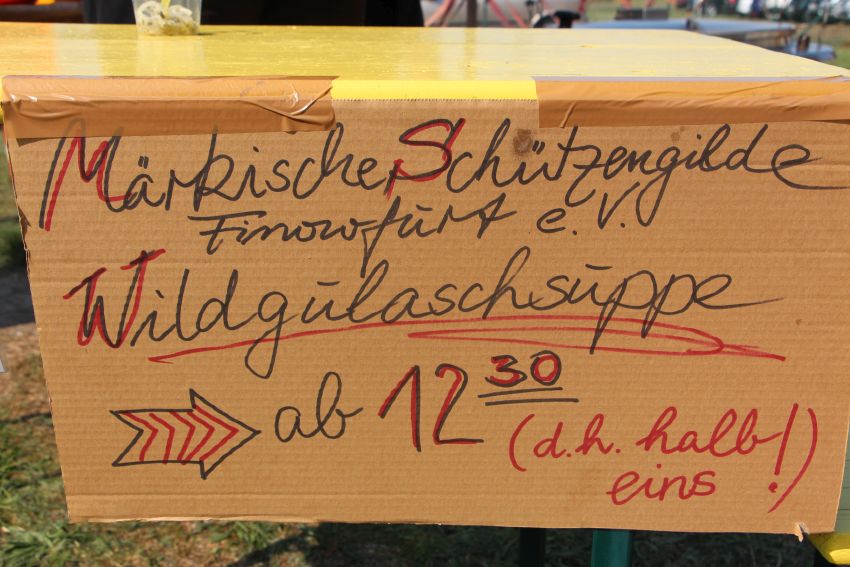 Märkische Schützengilde
Finowfurt e.V.
Wildgulaschsuppe
ab 12 30
(d.h. halb
eins!)